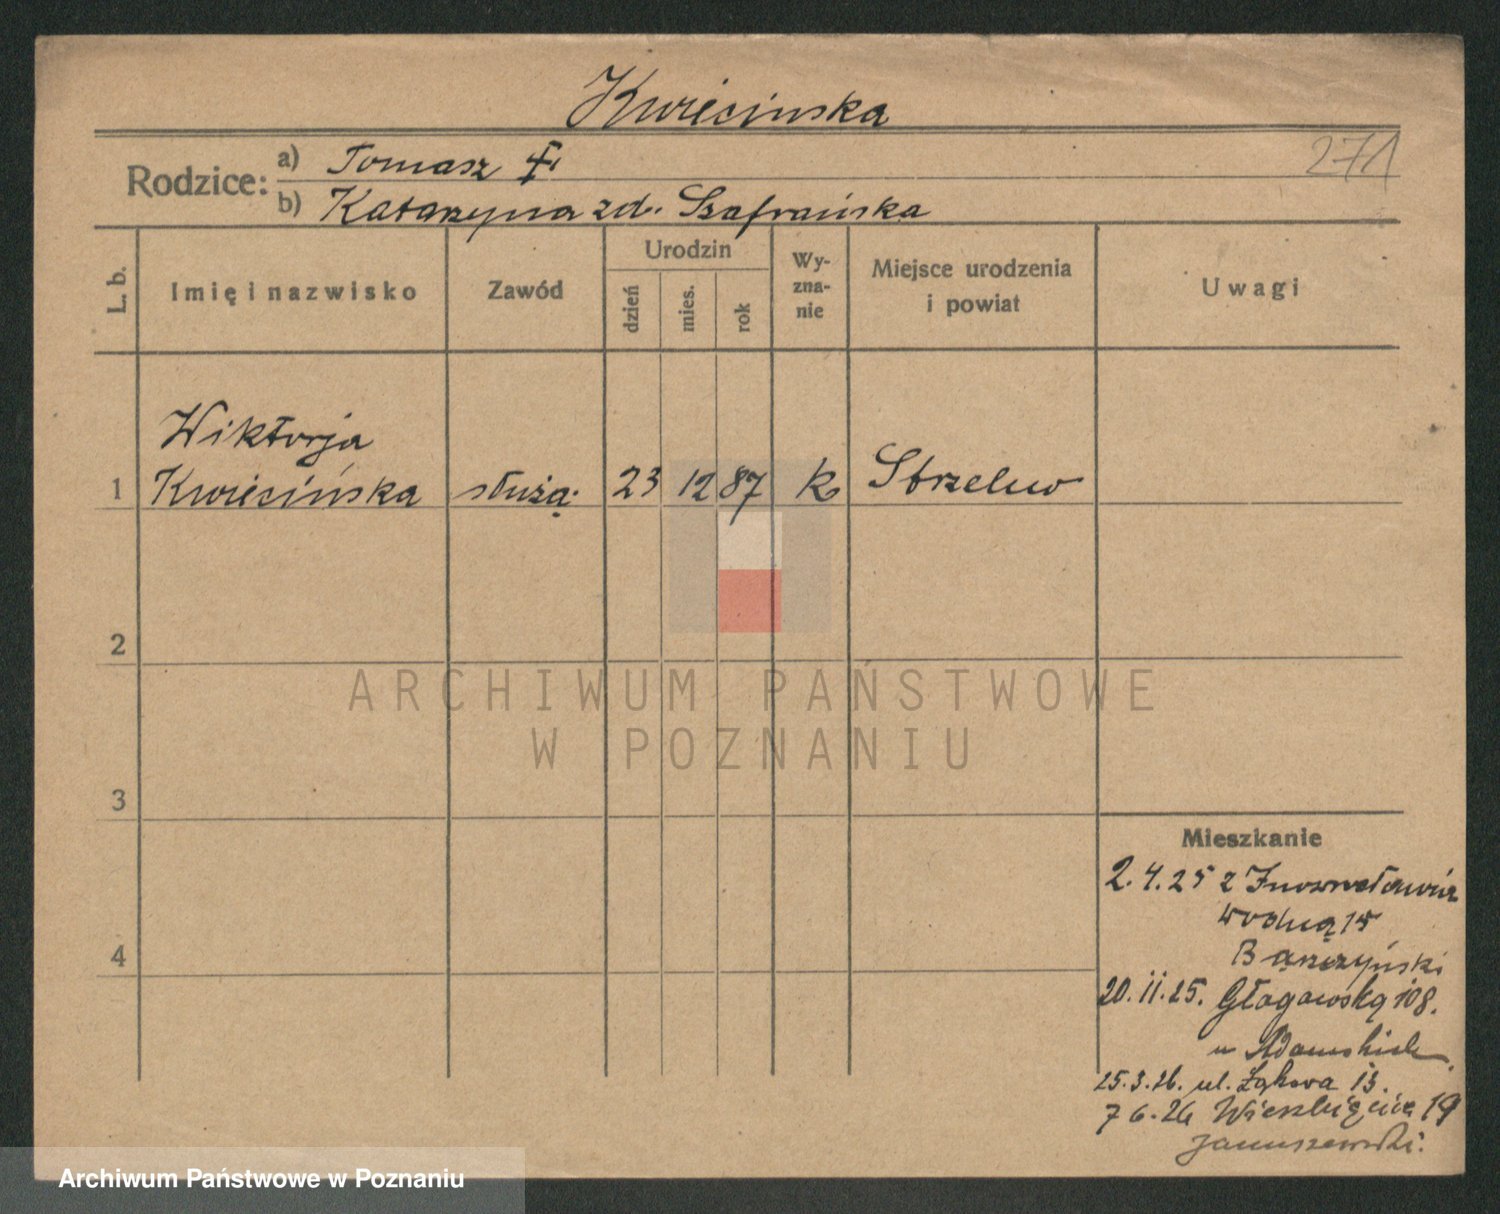 Kwiecinska
271
Rodzice: a) Tomasz †
b) Katarzyna zd. Szafrańska
L. b.
Imię i nazwisko
Zawód
Urodzin
dzień
mies.
rok
Wy-
zna-
nie
Miejsce urodzenia
i powiat
Uwagi
Wiktorja
1 Kwiecińska służą. 23 12 87 k Strzelno
2
ARCHIWUM PAŃSTWOWE
W POZNANIU
3
Mieszkanie
2.4.25 z Inowrocławia
Wodną 15
4
20.11.25. Głogowską 108.
u Adamskich
25.3.26. ul. Łąkowa 13.
7 6.26 Wierzbięcice 19
Januszewski.
Archiwum Państwowe w Poznaniu